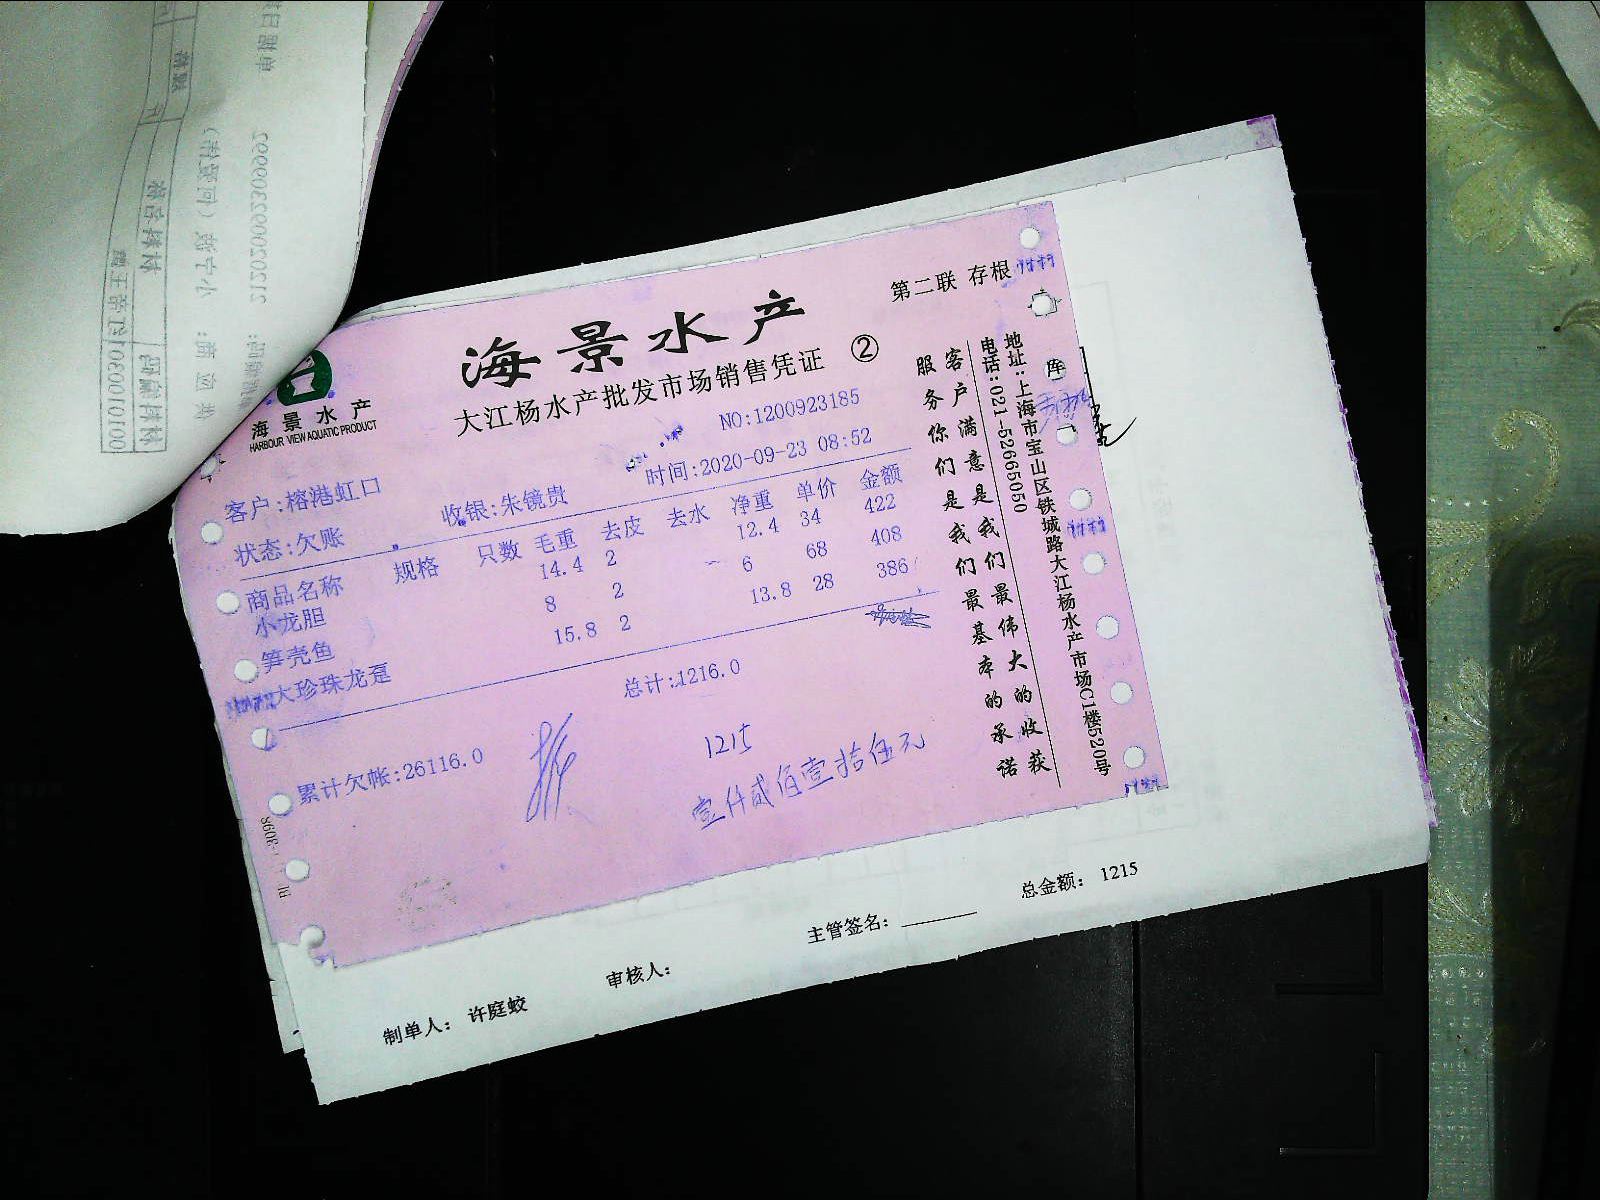 第二联 存根
海景水产
大江杨水产批发市场销售凭证 ②
海景水产
HARBOUR VIEW AQUATIC PRODUCT
NO:1200923185
时间:2020-09-23 08:52
客户:榕港虹口
收银:朱镜贵
状态:欠账
商品名称 规格 只数 毛重 去皮 去水 净重 单价 金额
小龙胆 14.4 2 12.4 34 422
笋壳鱼 8 2 6 68 408
大珍珠龙趸 15.8 2 13.8 28 386
总计:1216.0
累计欠帐:26116.0
1215
壹仟贰佰壹拾伍元
客户满意是我们最伟大的收获
服务你们是我们最基本的承诺
地址:上海市宝山区铁城路大江杨水产市场C1楼520号
电话:021-52665050
总金额: 1215
主管签名:
审核人:
制单人: 许庭蛟